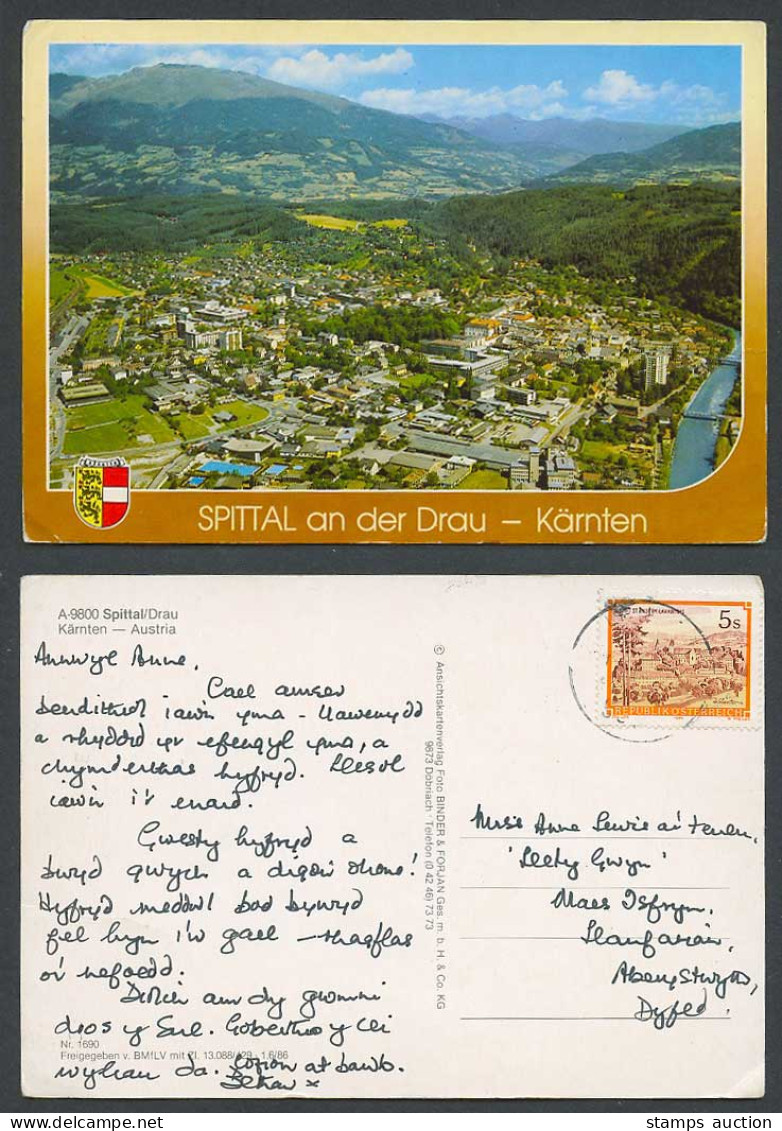 SPITTAL an der Drau – Kärnten
A-9800 Spittal/Drau
Kärnten — Austria
Annwyl Anne,
Cael amser
bendithiol iawn yma - llawenydd
a rhyddid yr efengyl yma, a
chymdeithas hyfryd. Llesol
iawn i'r enaid.
Gwesty hyfryd a
bwyd gwych a digon ohono!
Hyfryd meddwl bod bywyd
fel hyn i'w gael - rhagflas
o'r nefoedd.
Diolch am dy gwmni
dros y Sul. Gobeithio y cei
wyliau da. Cofion at bawb.
x
Nr. 1690
Freigegeben v. BMfLV mit Zl. 13.088/429 - 1.6/86
© Ansichtskartenverlag Foto BINDER & FORJAN Ges. m. b. H. & Co. KG
9873 Döbriach · Telefon (0 42 46) 73 73
5s
REPUBLIK ÖSTERREICH
Anne Lewis a'r teulu,
'Llety Gwyn'
Maes Isfryn,
Llanfarian,
Aberystwyth,
Dyfed.
stamps auction